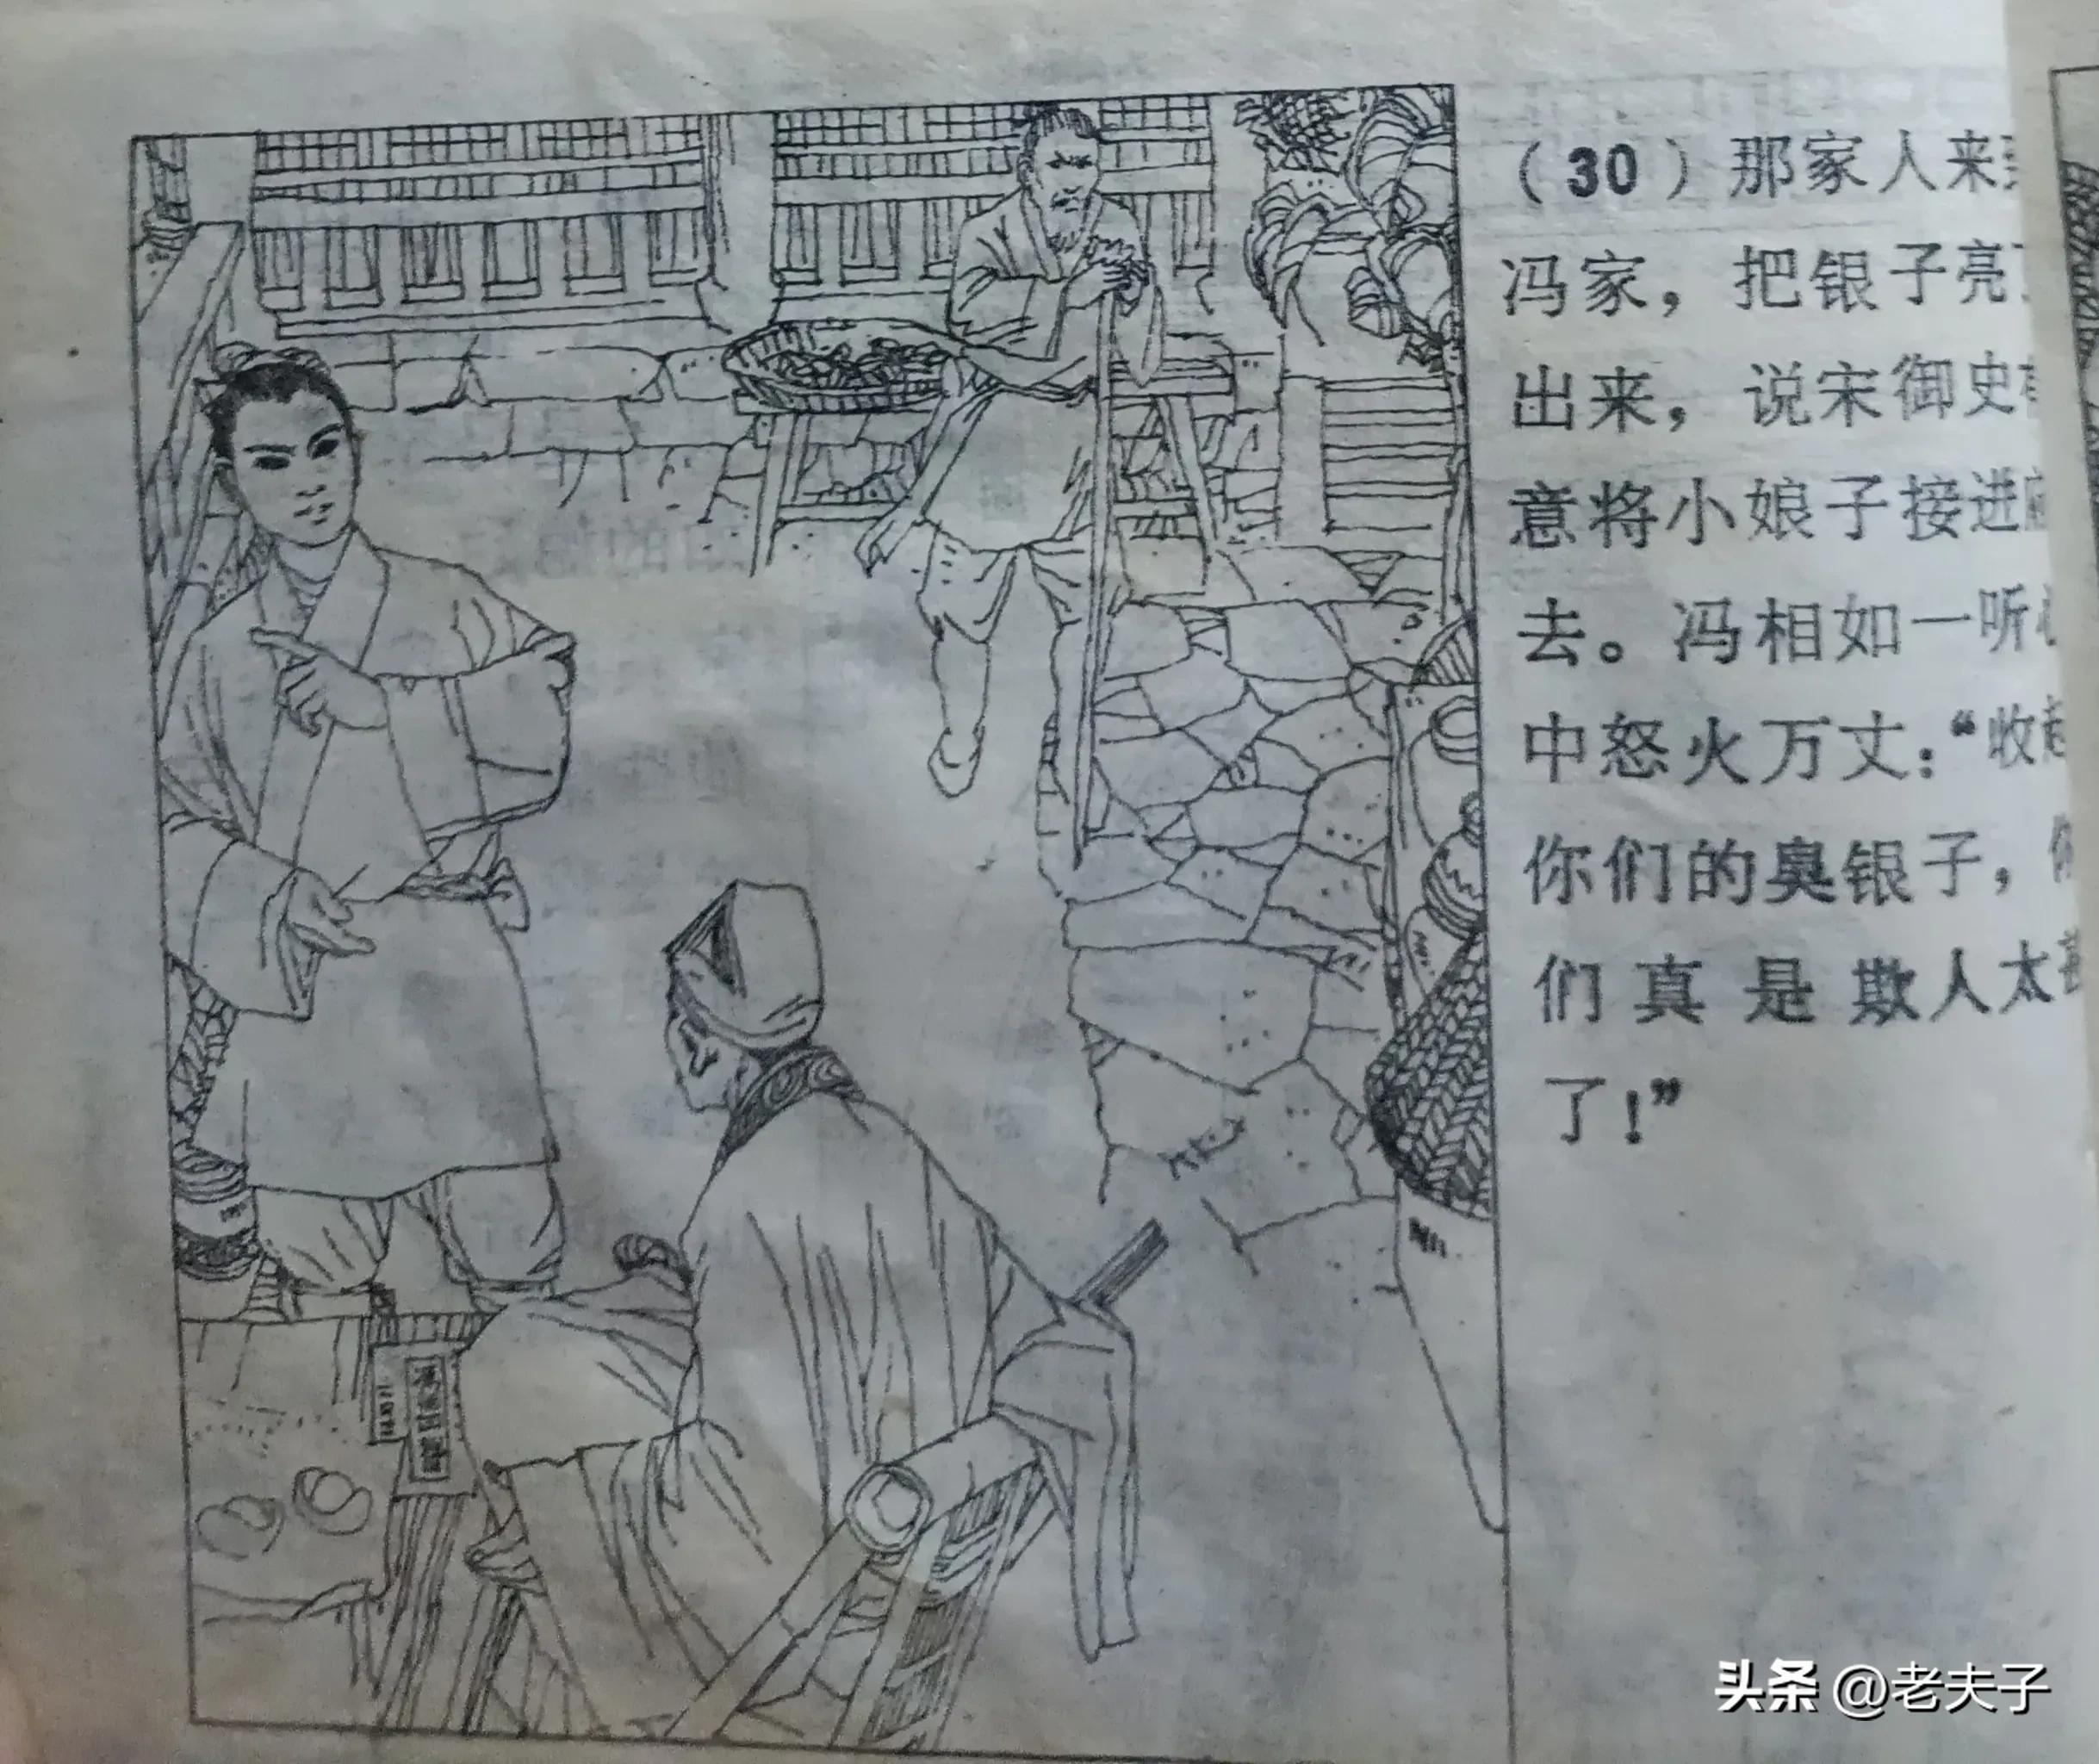 (30)那家人来到
冯家，把银子亮了
出来，说宋御史有
意将小娘子接进府
去。冯相如一听心
中怒火万丈：“收起
你们的臭银子，你
们真是欺人太甚
了！”
头条 @老夫子